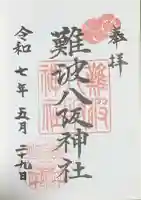 奉拝
難波八阪神社
令和七年五月二十九日